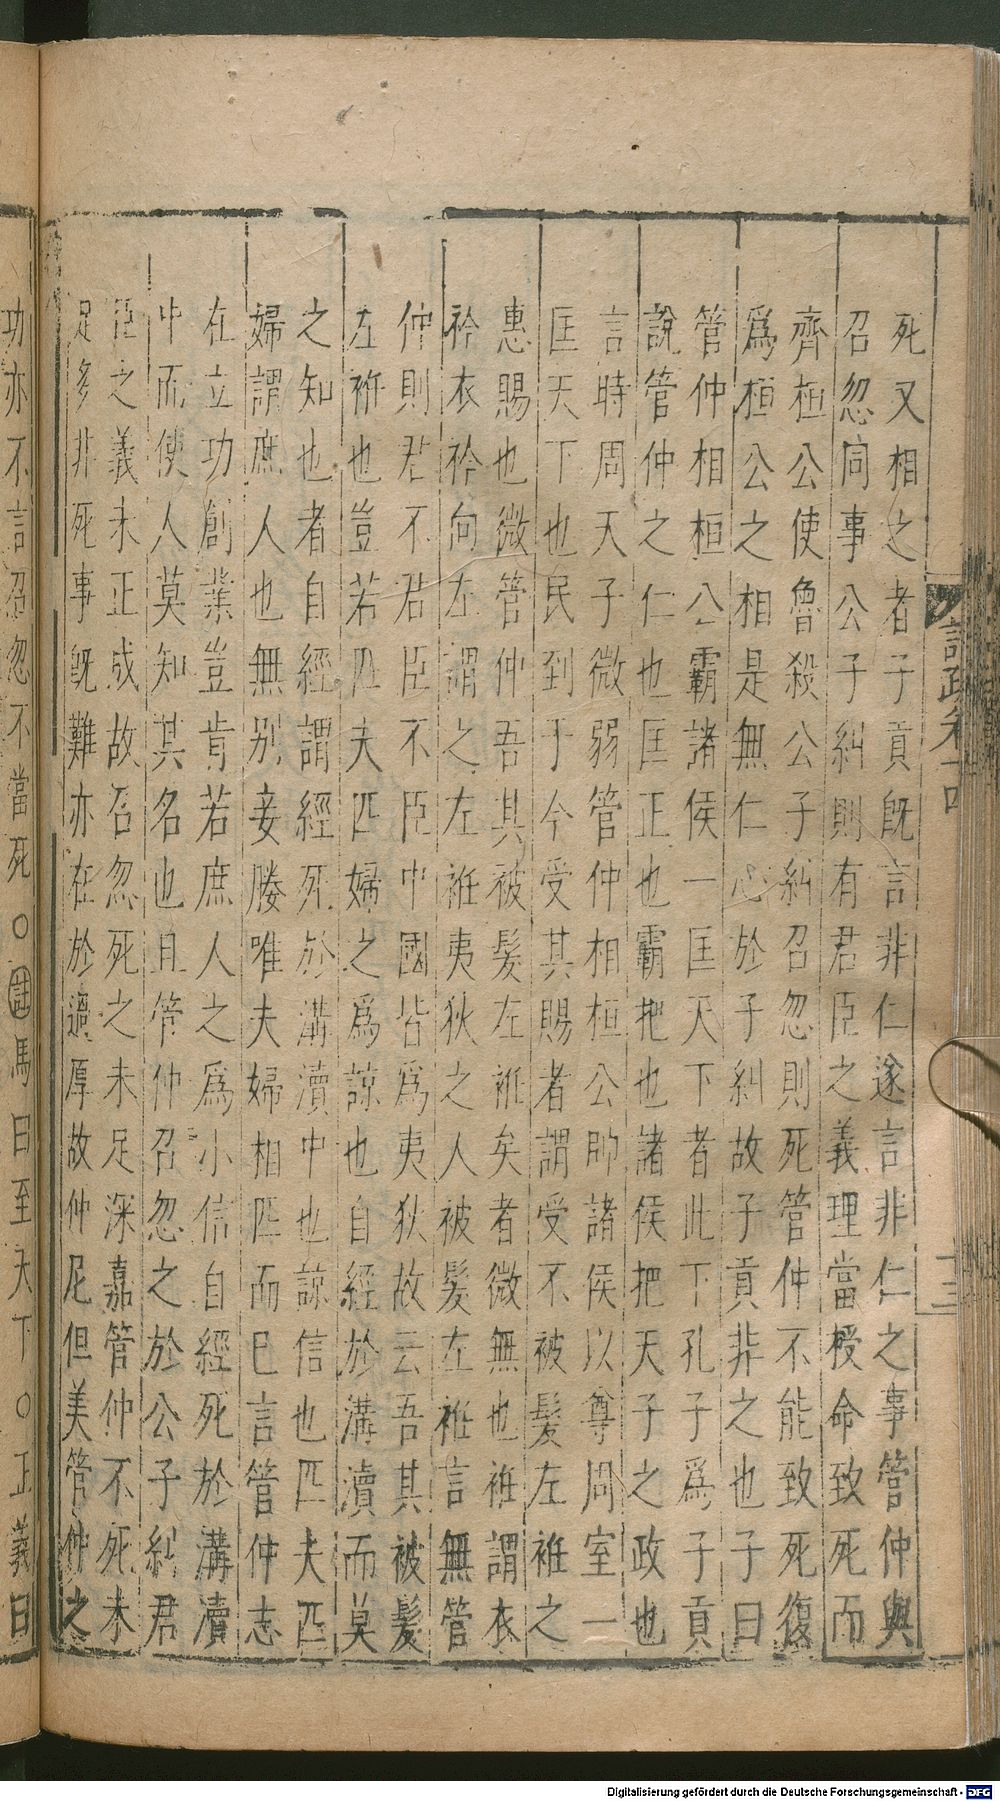 死又相之者子貢旣言非仁遂言非仁之事管仲與
召忽同事公子糾則有君臣之義理當授命致死而
齊桓公使魯殺公子糾召忽則死管仲不能致死復
爲桓公之相是無仁心於子糾故子貢非之也子曰
管仲相桓公霸諸侯一匡天下者此下孔子爲子貢
說管仲之仁也匡正也霸把也諸侯把天子之政也
言時周天子微弱管仲相桓公帥諸侯以尊周室一
匡天下也民到于今受其賜者謂受不被髮左袵之
惠賜也微管仲吾其被髮左袵矣者微無也袵謂衣
衿衣衿向左謂之左袵夷狄之人被髮左袵言無管
仲則君不君臣不臣中國皆爲夷狄故云吾其被髮
左袵也豈若匹夫匹婦之爲諒也自經於溝瀆而莫
之知也者自經謂經死於溝瀆中也諒信也匹夫匹
婦謂庶人也無別妾媵唯夫婦相匹而巳言管仲志
在立功創業豈肯若庶人之爲小信自經死於溝瀆
中而使人莫知其名也且管仲召忽之於公子糾君
臣之義未正成故召忽死之未足深嘉管仲不死未
足多非死事旣難亦在於過厚故仲尼但美管仲之
功亦不言召忽不當死○註馬曰至天下○正義曰
十三
Digitalisierung gefördert durch die Deutsche Forschungsgemeinschaft - DFG